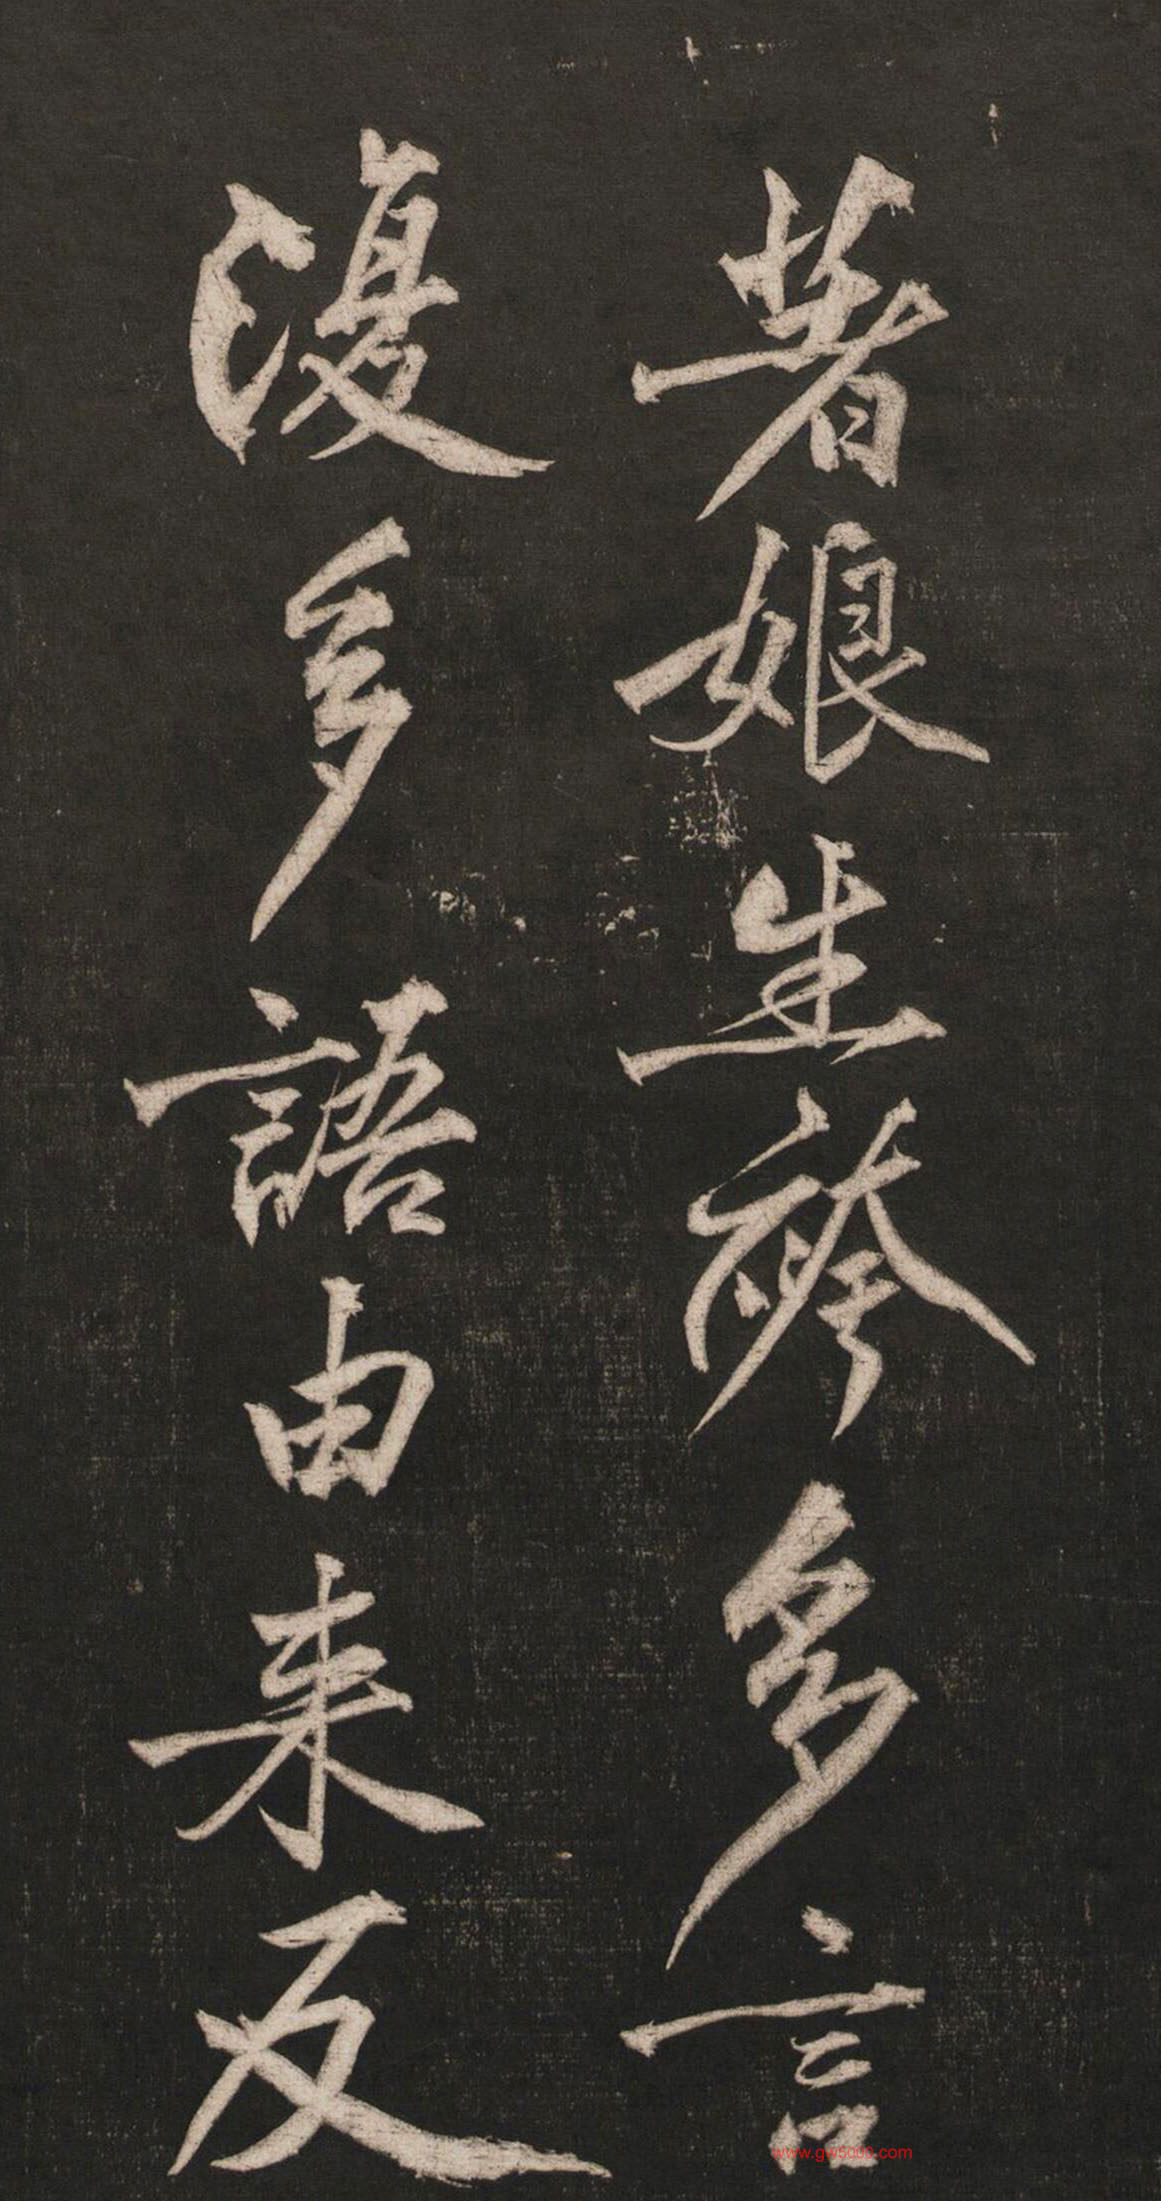 著娘生袴多言
復多語由来反
www.gw5000.com